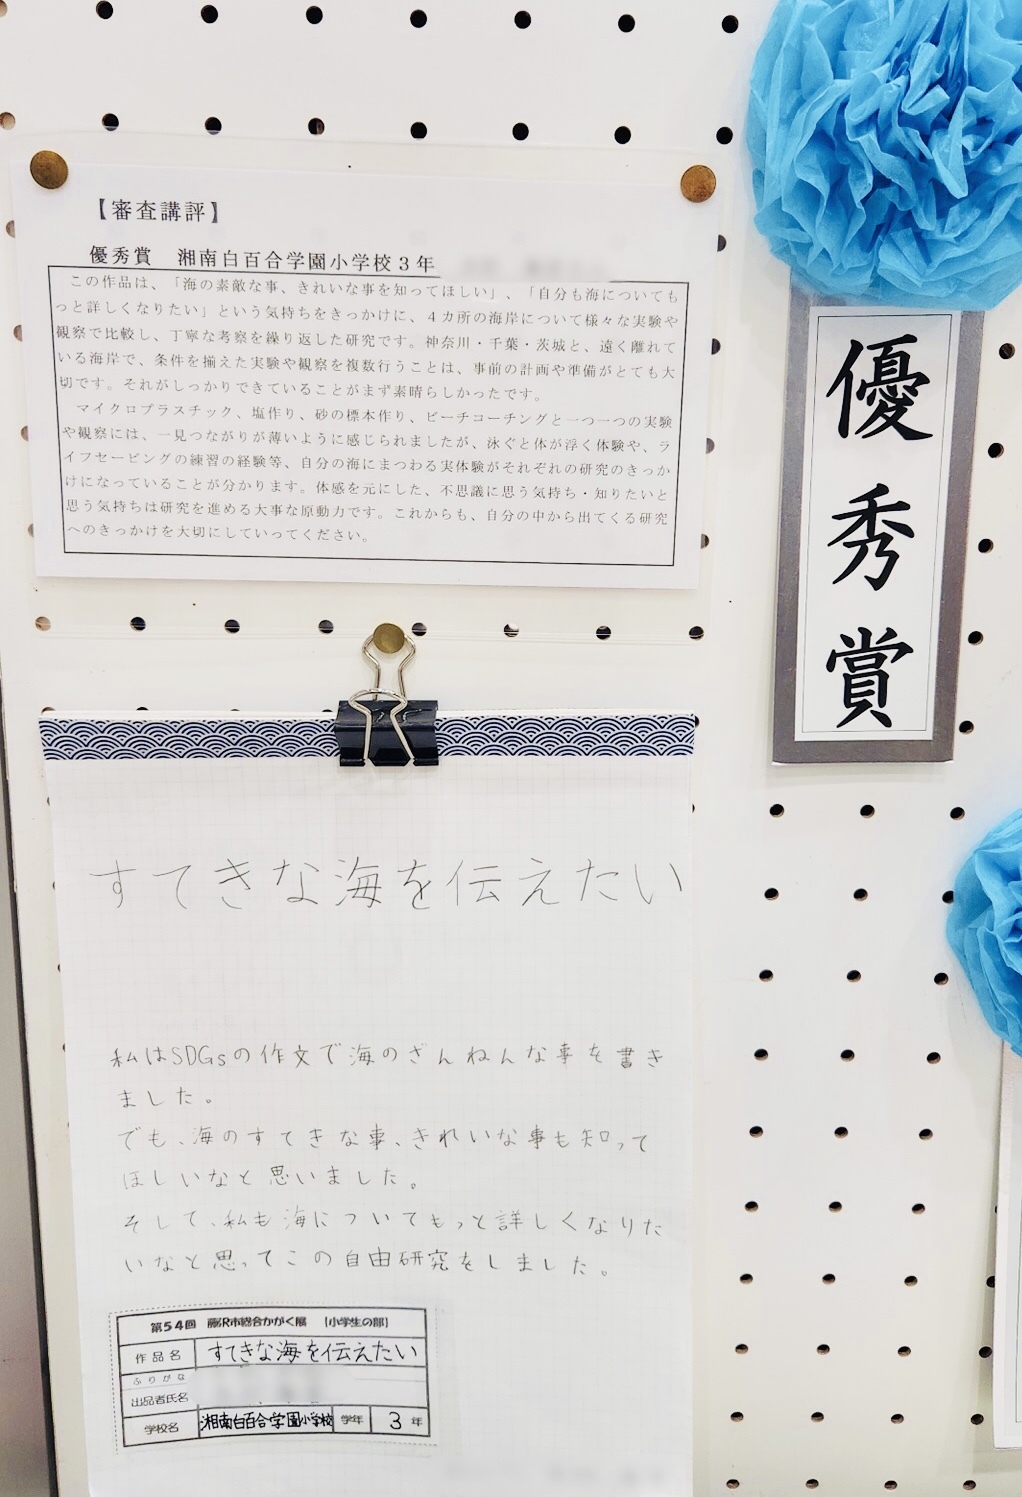 【審査講評】
優秀賞 湘南白百合学園小学校3年
この作品は、「海の素敵な事、きれいな事を知ってほしい」、「自分も海についても
っと詳しくなりたい」という気持ちをきっかけに、4カ所の海岸について様々な実験や
観察で比較し、丁寧な考察を繰り返した研究です。神奈川・千葉・茨城と、遠く離れて
いる海岸で、条件を揃えた実験や観察を複数行うことは、事前の計画や準備がとても大
切です。それがしっかりできていることがまず素晴らしかったです。
マイクロプラスチック、塩作り、砂の標本作り、ビーチコーチングと一つ一つの実験
や観察には、一見つながりが薄いように感じられましたが、泳ぐと体が浮く体験や、ラ
イフセービングの練習の経験等、自分の海にまつわる実体験がそれぞれの研究のきっか
けになっていることが分かります。体感を元にした、不思議に思う気持ち・知りたいと
思う気持ちは研究を進める大事な原動力です。これからも、自分の中から出てくる研究
へのきっかけを大切にしていってください。
優秀賞
すてきな海を伝えたい
私はSDGsの作文で海のざんねんな事を書き
ました。
でも、海のすてきな事、きれいな事も知って
ほしいなと思いました。
そして、私も海についてもっと詳しくなりた
いなと思ってこの自由研究をしました。
第54回 藤沢市総合かがく展 [小学生の部]
作品名 すてきな海を伝えたい
ふりがな
出品者氏名
学校名 湘南白百合学園小学校 学年 3年